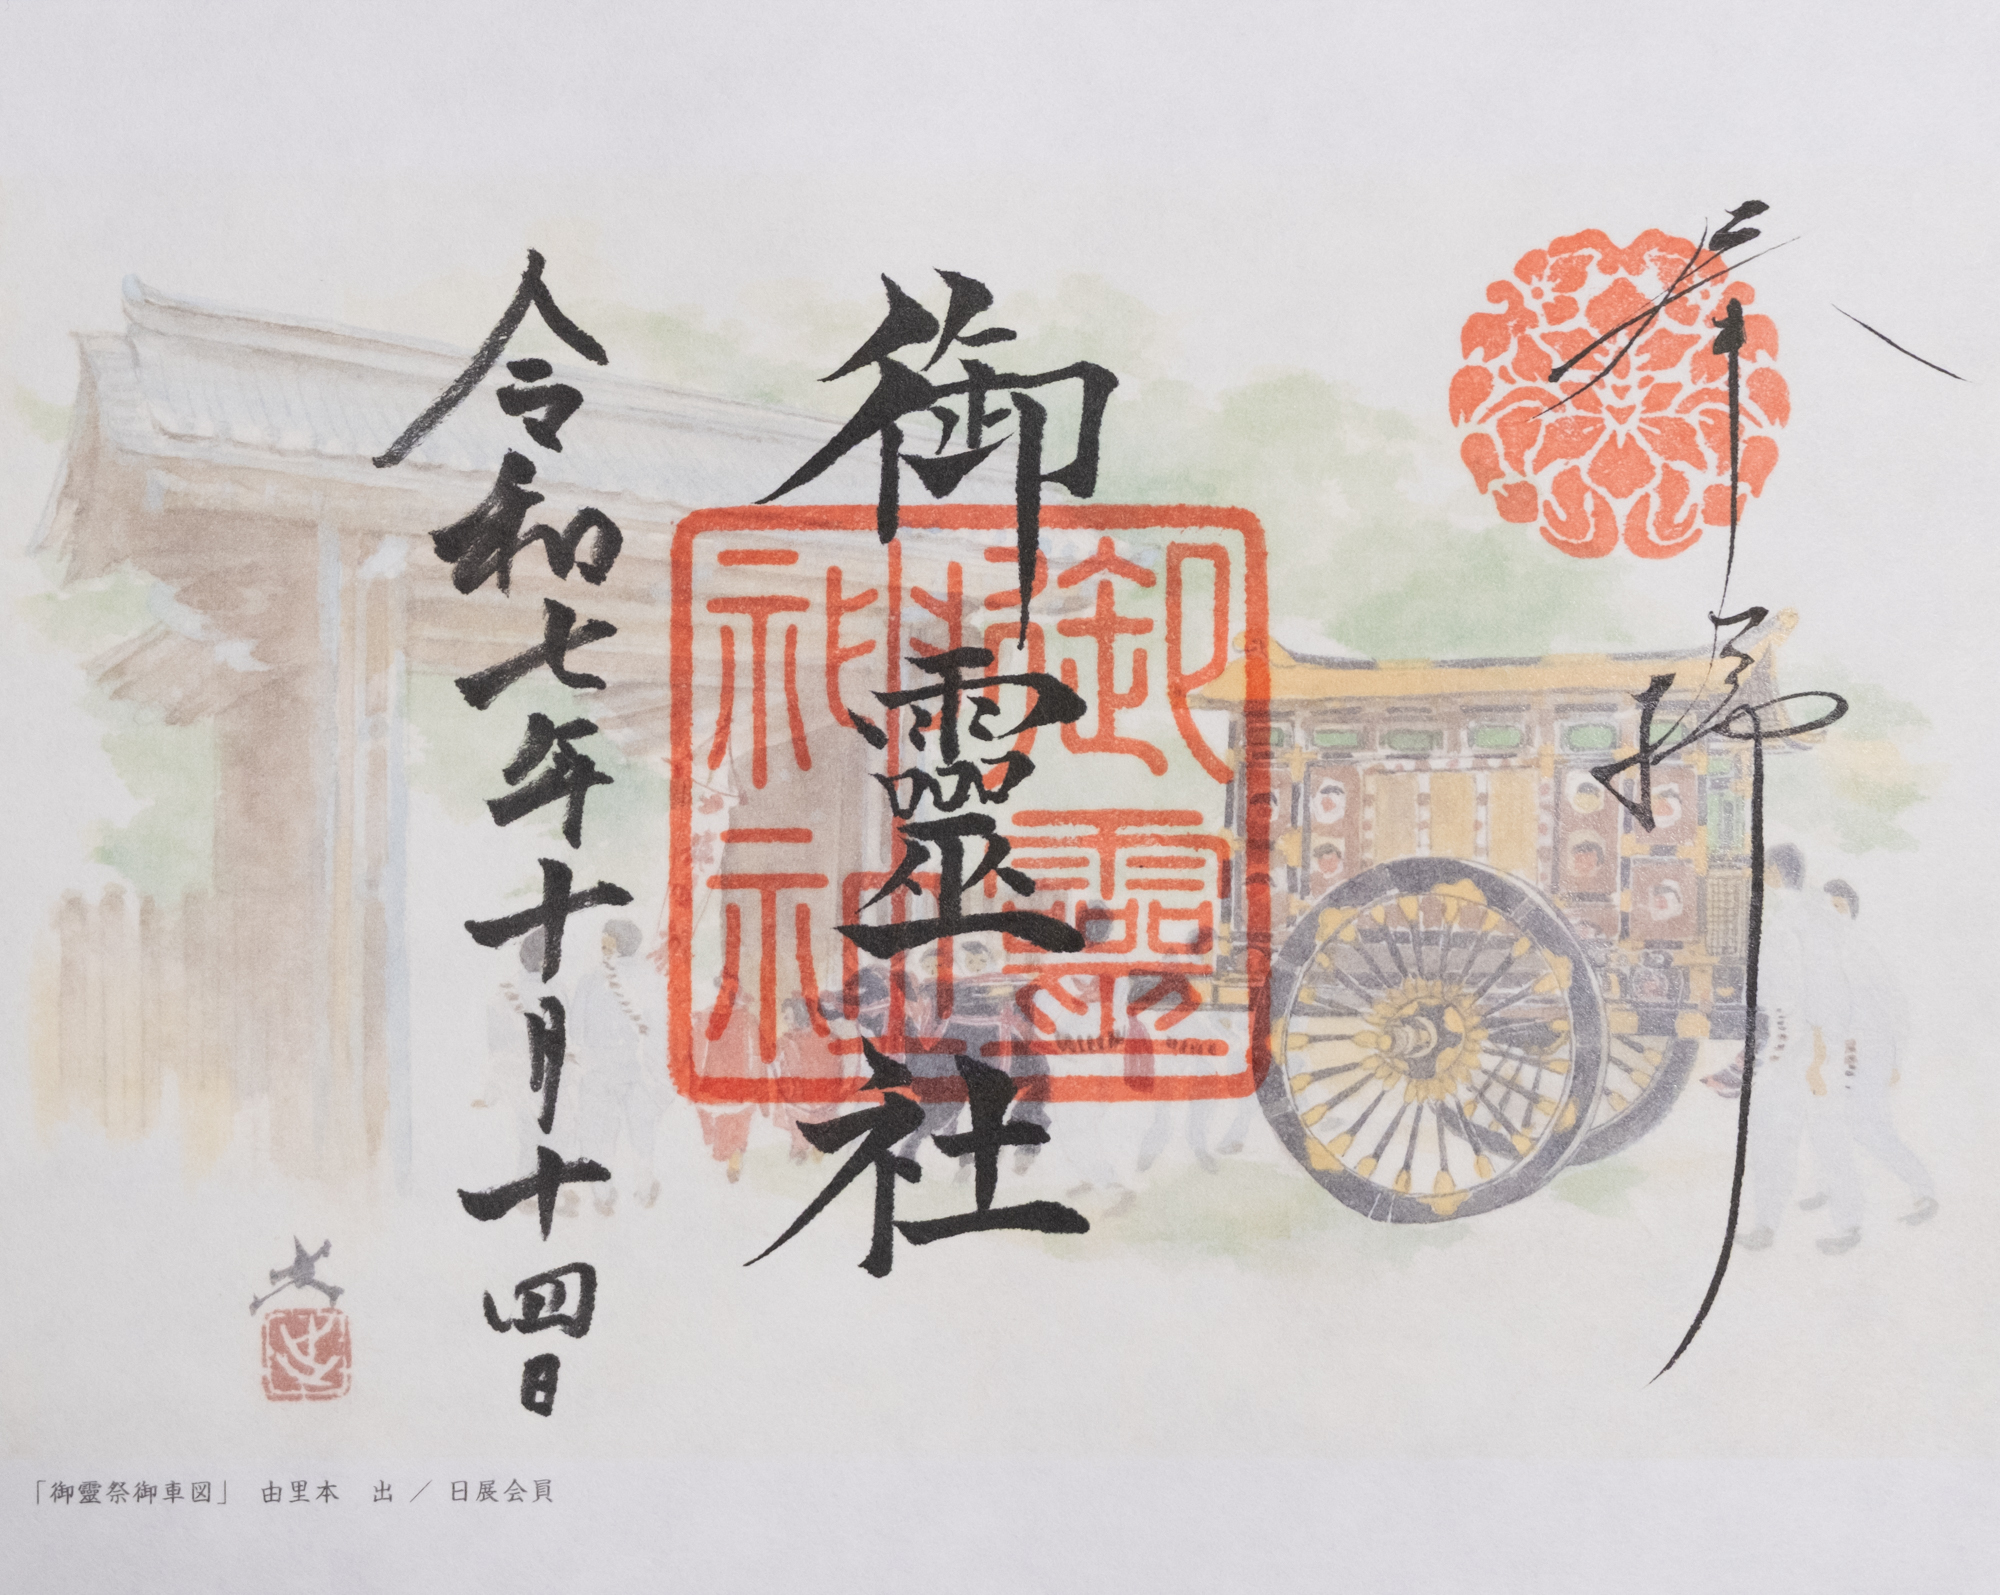 奉拝
御靈社
御靈神社
令和七年十月十四日
出
「御靈祭御車図」 由里本 出 ／ 日展会員